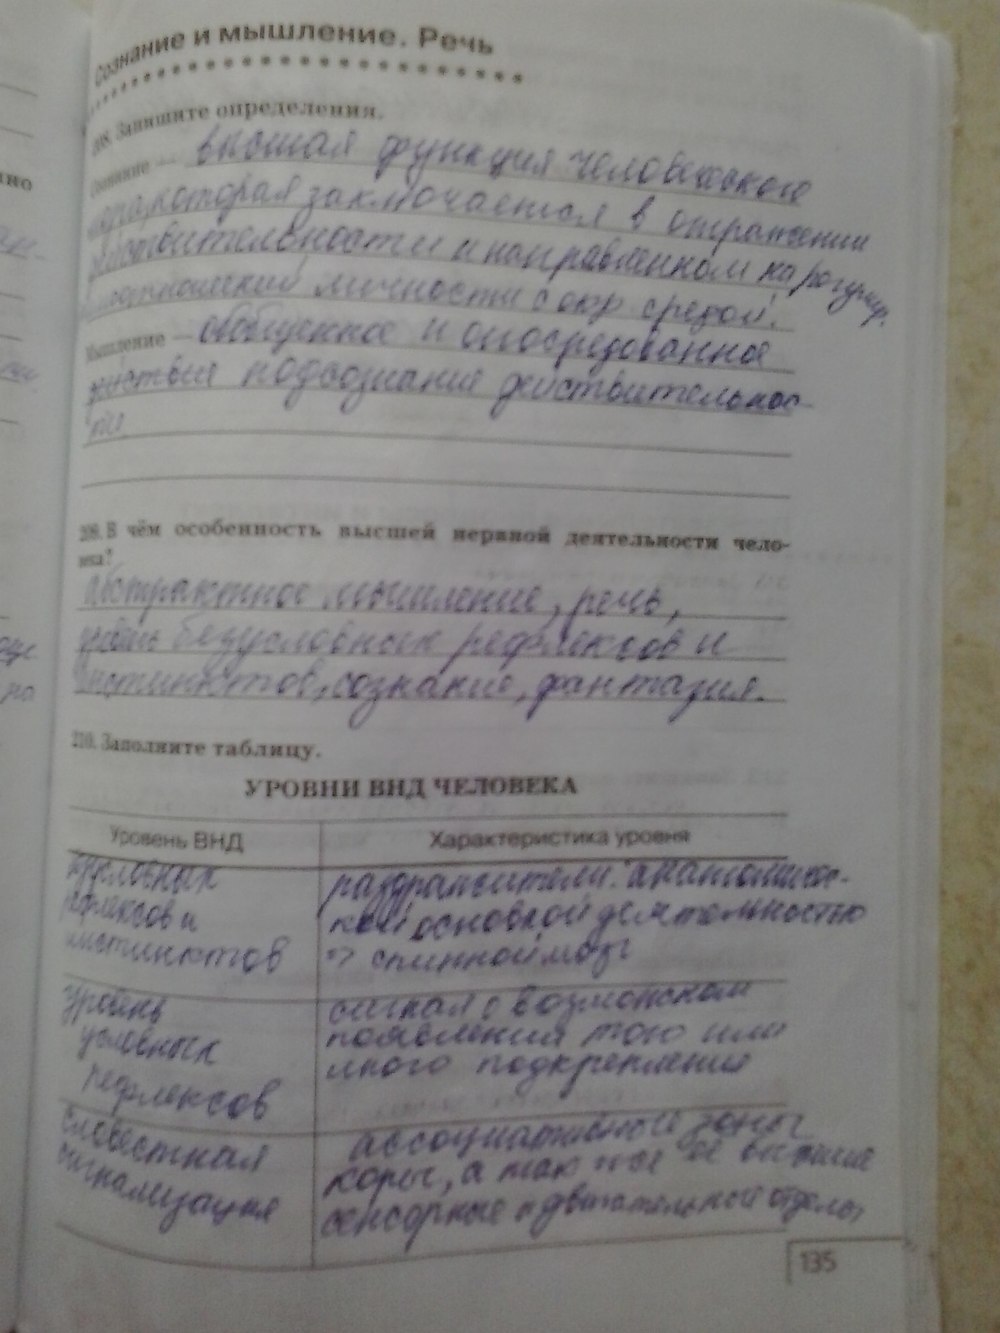 Сознание и мышление. Речь
208. Запишите определения.
Сознание — высшая функция человеческого
мозга, которая заключается в отражении
действительности и направленном на регулир.
личности с окр. средой.
Мышление — обобщенное и опосредованное
действия подсознание действительнос-
ти
209. В чём особенность высшей нервной деятельности чело-
века?
абстрактное мышление, речь,
уровень безусловных рефлексов и
инстинктов, сознание, фантазия.
210. Заполните таблицу.
УРОВНИ ВНД ЧЕЛОВЕКА
Уровень ВНД
Характеристика уровня
безусловных
рефлексов и
инстинктов
раздражители. анатомичес-
кой основой деятельностью
=> спинной мозг
уровень
условных
рефлексов
сигнал о возможном
появлении того или
иного подкрепления
словестная
сигнализация
ассоциативные зоны
коры, а так же её высшие
сенсорные и двигательный отделы
135